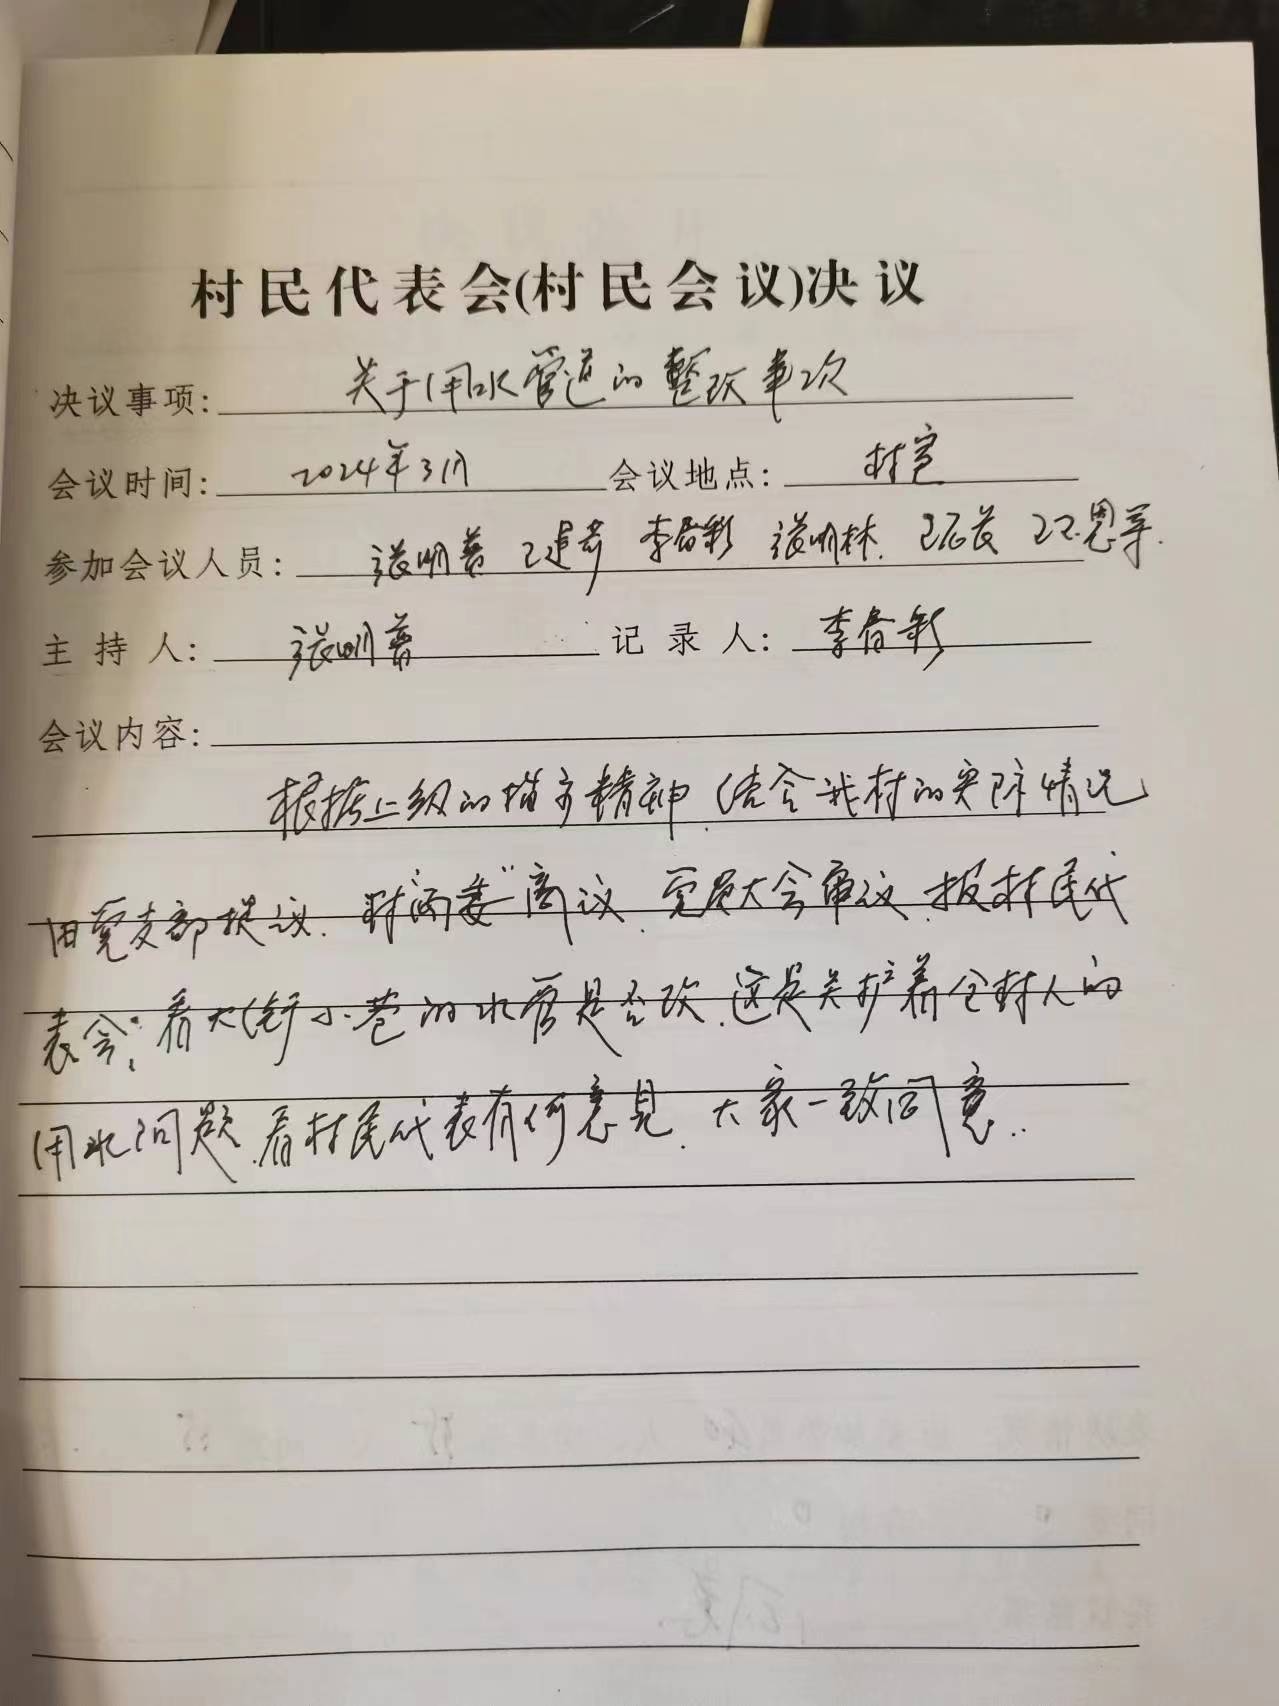 村民代表会(村民会议)决议
决议事项: 关于用水管道的整改事次
会议时间: 2024年3月 会议地点: 村室
参加会议人员: 张明普 李春彩 张明林
主持人: 张明普 记录人: 李春彩
会议内容:
根据上级的指示精神,结合我村的实际情况
由党支部提议.村“两委”商议.党员大会审议.报村民代
表会:看大街小巷的水管是否改.这是关护着全村人的
用水问题.看村民代表有何意见.大家一致同意..